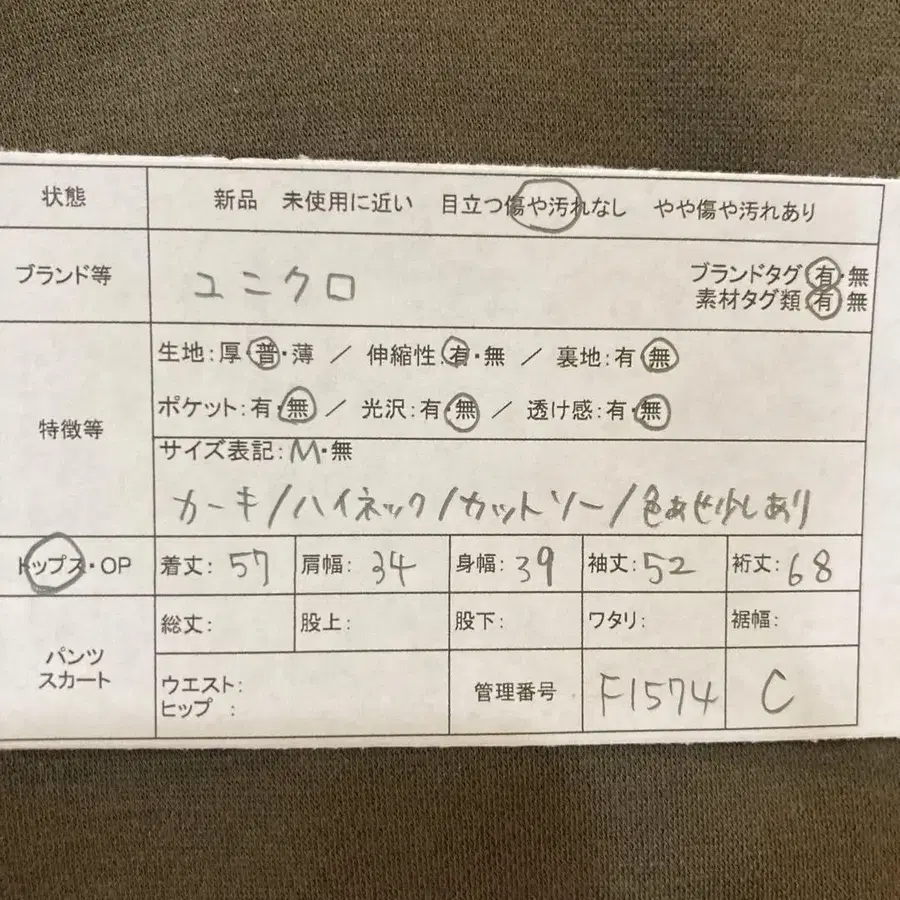 状態 新品 未使用に近い 目立つ傷や汚れなし やや傷や汚れあり
ブランド等 ユニクロ ブランドタグ 有・無
素材タグ類:有・無
特徴等 生地:厚・普・薄 / 伸縮性:有・無 / 裏地:有・無
ポケット:有・無 / 光沢:有・無 / 透け感:有・無
サイズ表記:M・無
カーキ/ハイネック/カットソー/色あせ少しあり
トップス・OP 着丈:57 肩幅:34 身幅:39 袖丈:52 裄丈:68
パンツ スカート 総丈: 股上: 股下: ワタリ: 裾幅:
ウエスト: 管理番号 F1574 C
ヒップ :